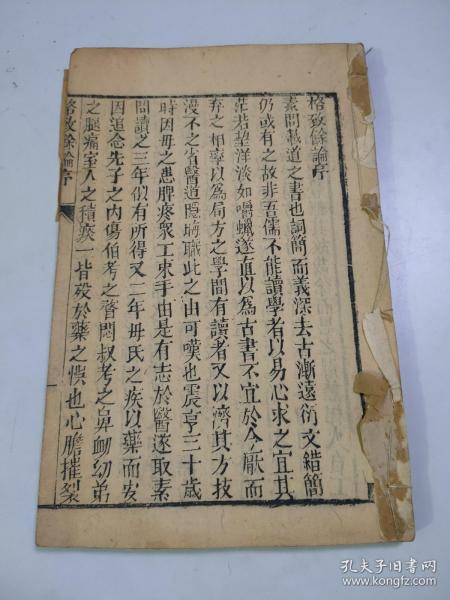 格致餘論序
素問載道之書也詞簡而義深去古漸遠衍文錯簡
仍或有之故非吾儒不能讀學者以易心求之宜其
茫若望洋淡如嚼蠟遂直以為古書不宜於今厭而
弃之相率以為局方之學間有讀者又以濟其方技
漫不之省醫道隱晦職此之由可嘆也震亨三十歲
時因母之患脾疼衆工束手由是有志於醫遂取素
問讀之三年似有所得又二年母氏之疾以藥而安
因追念先子之內傷伯考之瞀悶叔考之鼻衄幼弟
之腿痛室人之積痰一皆殁於藥之悞也心膽摧裂
格致餘論序
孔夫子旧书网
www.kongfz.com